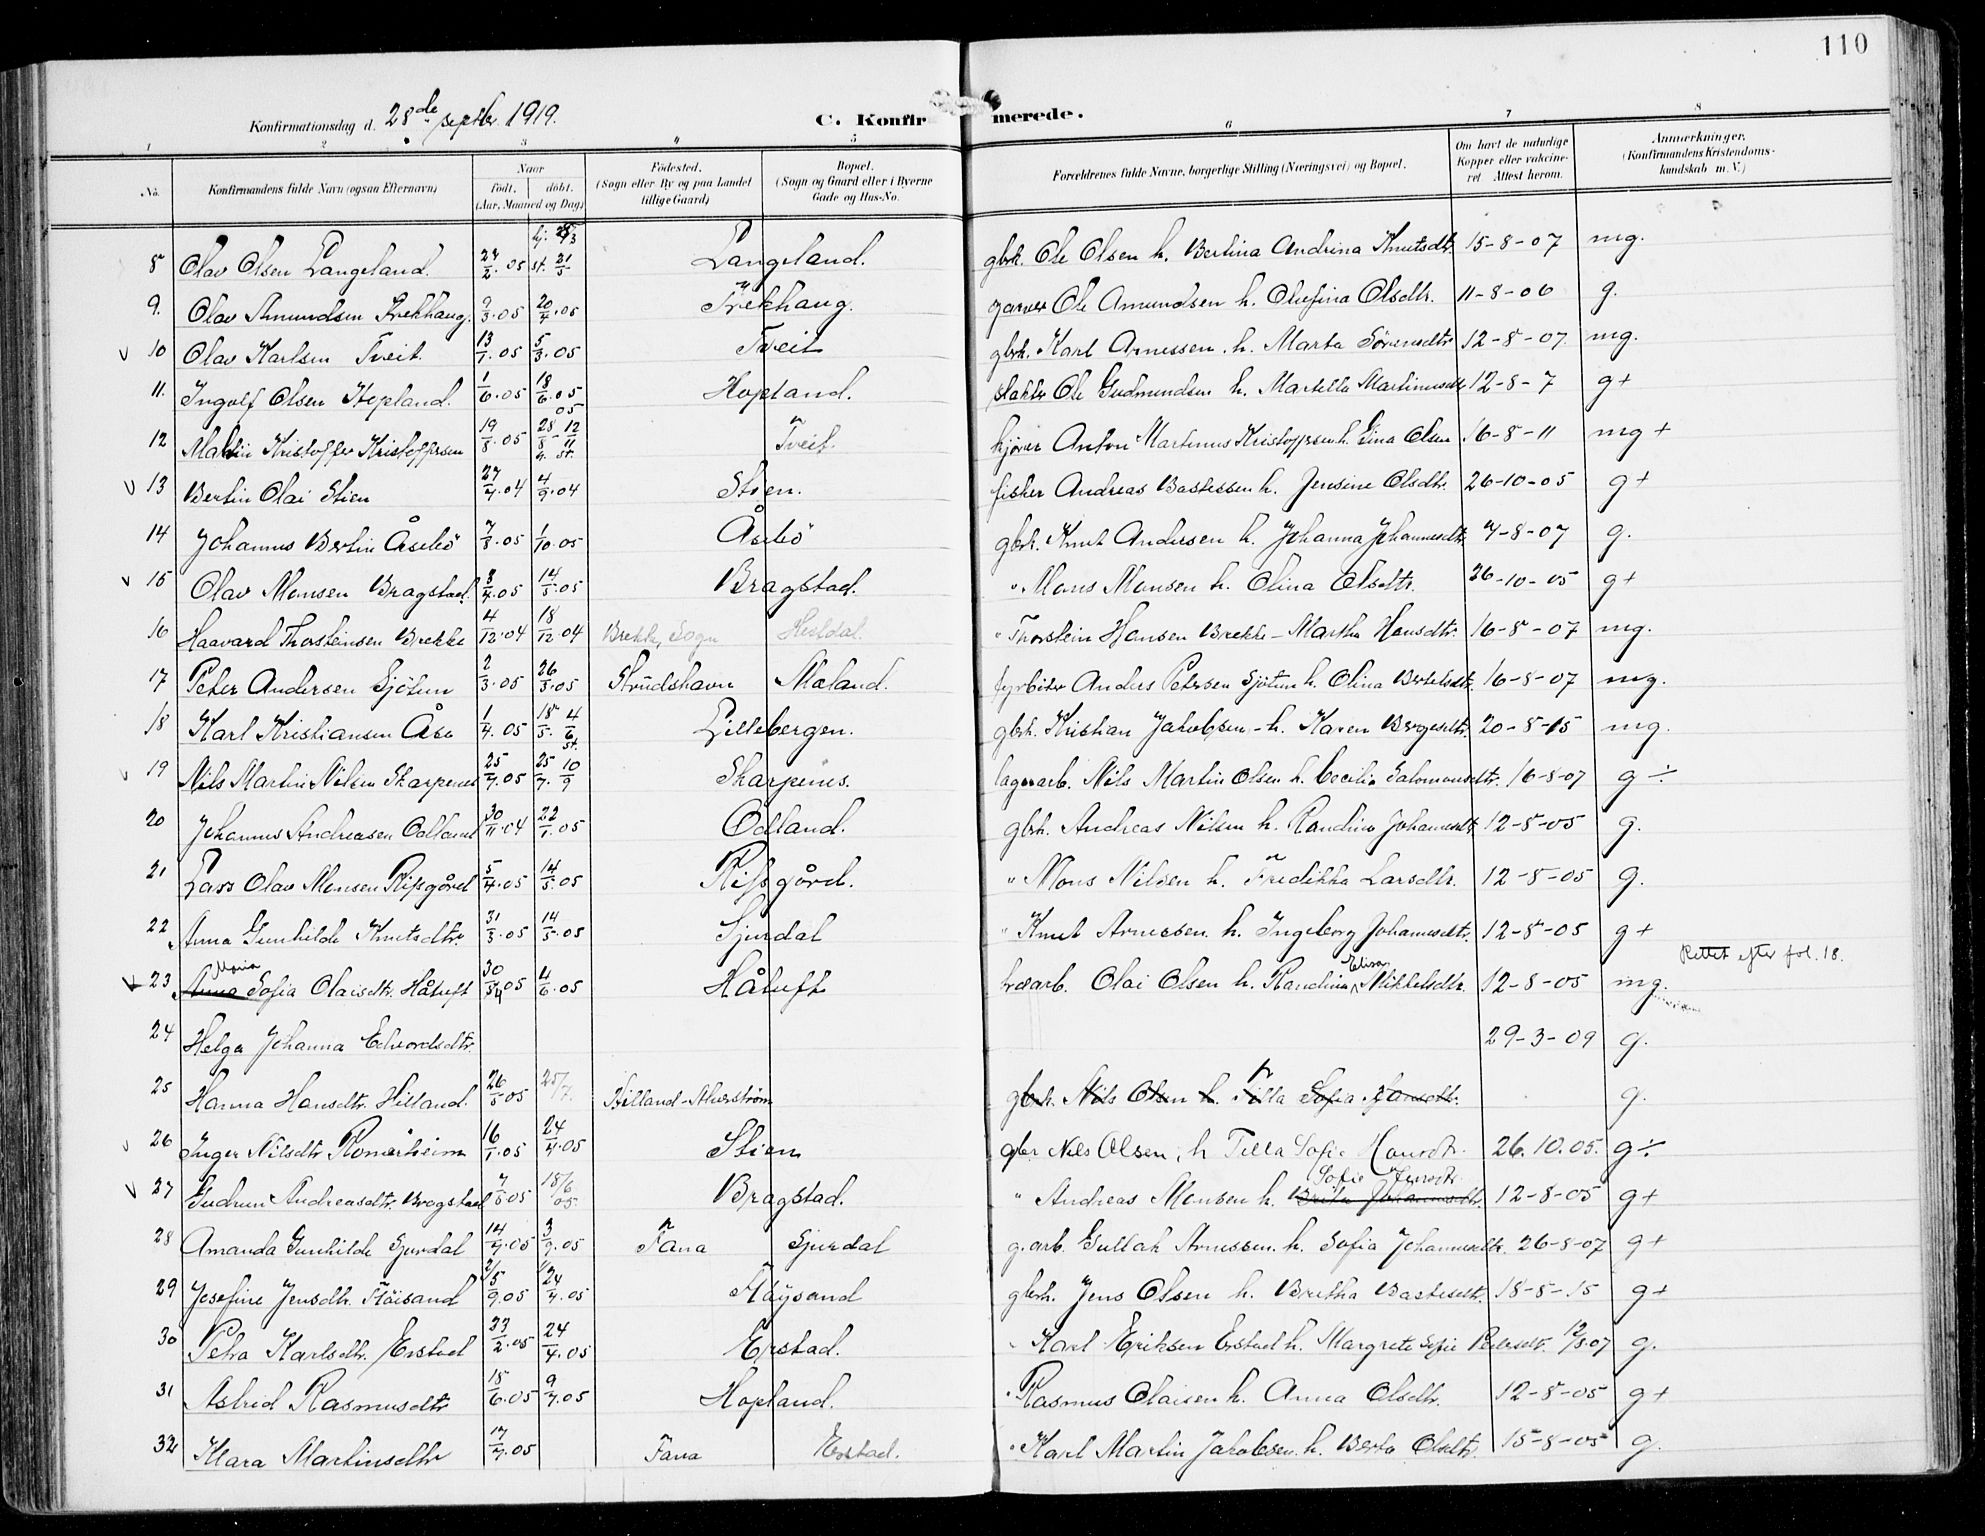 110
Konfirmationsdag d. 28de septbr. 1919.
C. Konfirmerede.
1 2 3 4 5 6 7 8
No. Konfirmandens fulde Navn (ogsaa Efternavn) Naar født, døbt. (Aar, Maaned og Dag) Fødested. (Sogn eller By og paa Landet tillige Gaard) Bopæl. (Sogn og Gaard eller i Byerne Gade og Hus-No. Forældrenes fulde Navne, borgerlige Stilling (Næringsvei) og Bopæl. Om havt de naturlige Kopper eller vakcineret Attest herom. Anmerkninger. (Konfirmandens Kristendomskundskab m. V.)
8 Olav Olsen Langeland. 05 st. 21/5 Langeland. gbrk. Ole Olsen h. Bertina Andrina Knutsdtr. 15-8-07 mg.
9. Olav Amundsen Trekhaug. 9/3.05 20/4.05 Trekhaug. garver Ole Amundsen h. Olufina Olsdtr. 11-8-06 g.
10 Olav Karlsen Tveit. 13/1.05 5/3.05 Tveit gbrk. Karl Arnessen h. Marta Sørensdtr. 12-8-07. mg.
11. Ingolf Olsen Hopland. 1/6.05 18/6.05 Hopland. slakter Ole Gudmundsen h. Martella Martinusdtr. 12-8-7 g+
12 Martin Kristoffer Kristoffersen 19/8.05 28/8 - 12/11 05 Tveit. kjører Anton Martinus Kristoffersen h. Gina Olsen 16-8-11 mg+
13 Bertin Olai Stien 27/7.04 4/9.04 Stien. fisker Andreas Bastessen h. Jensine Olsdtr. 26-10-05 g+
14 Johannes Bertin Åsebö 7/8.05 1/10.05 Åsebö gbrk. Knut Andersen h. Johanna Johannesdtr. 7-8-07 g.
15 Olav Monsen Bragstad. 8/4.05 14/5.05 Bragstad. " Mons Monsen h. Olina Olsdtr. 26-10-05 g+
16 Haavard Thorsteinsen Brekke 4/12.04 18/12.04 Brekke, Sogn Heldal. " Thorstein Hansen Brekke - Martha Hansdtr. 16-8-07 mg.
17 Peter Andersen Sjötun 2/3.05 26/3.05 Strudshavn Maland. fyrböter Anders Petersen Sjötun h. Olina Bertelsdtr. 16-8-07 mg.
18 Karl Kristiansen Åse 1/4.05 18/5. 4/6 Lillebergen. gbrk. Kristian Jakobsen - h. Karen Børgesdtr. 20-8-15 mg.
19 Nils Martin Nilsen Skarpenes 25/7.05 25/7. 10/9 st. Skarpenes. lagerarb. Nils Martin Olsen h. Cecilie Salomonsdtr. 16-8-07 g÷
20 Johannes Andreasen Odland 30/11.04 22/1.05 Odland. gbrk. Andreas Nilsen h. Randina Johannesdtr. 12-8-05 g.
21 Lars Olav Monsen Risgård 5/4.05 14/5.05 Risgård. " Mons Nilsen h. Fredikka Larsdtr. 12-8-05 g.
22 Anna Gunhilde Knutsdtr. 31/3.05 14/5.05 Sjurdal " Knut Arnessen h. Ingeborg Johannesdtr. 12-8-05 g+
23 Anna Maria Sofia Olaisdtr. Håtuft 30/4 05 4/6.05 Håtuft træarb. Olai Olsen h. Randina Elisa Mikkelsdtr. 12-8-05 mg. Rettet efter fol. 18.
24 Helga Johanna Edvardsdtr. 29-3-09 g.
25 Hanna Hansdtr. Hilland. 26/5 05 25/7. Hilland-Alverström gbrk. Nils Olsen h. Tilla Sofia Hansdtr. g.
26 Inger Nilsdtr Romarheim 16/1.05 24/4.05 Stien gbr Nils Olsen, h Tilla Sofie Hansdtr. 26.10.05. g÷
27 Gudrun Andreasdtr. Bragstad 7/5 05 18/6 05. Bragstad. " Andreas Monsen h. Brita Johannesdtr. Sofie Jensdtr. 12-8-05 g+
28 Amanda Gunhilde Sjurdal 14/7.05 3/9.05 Fana Sjurdal g.arb. Gullak Arnessen. h. Sofia Johannesdtr. 26-8-07 g+
29 Josefine Jensdtr. Flöisand 9.05 24/4.05 Fløysand gbrk. Jens Olsen h. Bretha Bastesdtr. 18-8-15 g+
30 Petra Karlsdtr. Erstad 23/2.05 24/4.05 Erstad. " Karl Eriksen Erstad h. Margrete Sofie Pedersdtr. 12/8.07 g.
31 Astrid Rasmusdtr 18/6.05 9/7.05 Hopland. " Rasmus Olaisen h. Anna Olsdtr. 12-8-05 g+
32 Klara Martinsdtr 17/7.05 Fana Erstad. " Karl Martin Jakobsen h. Berta Olsdtr. 15-8-05 g.